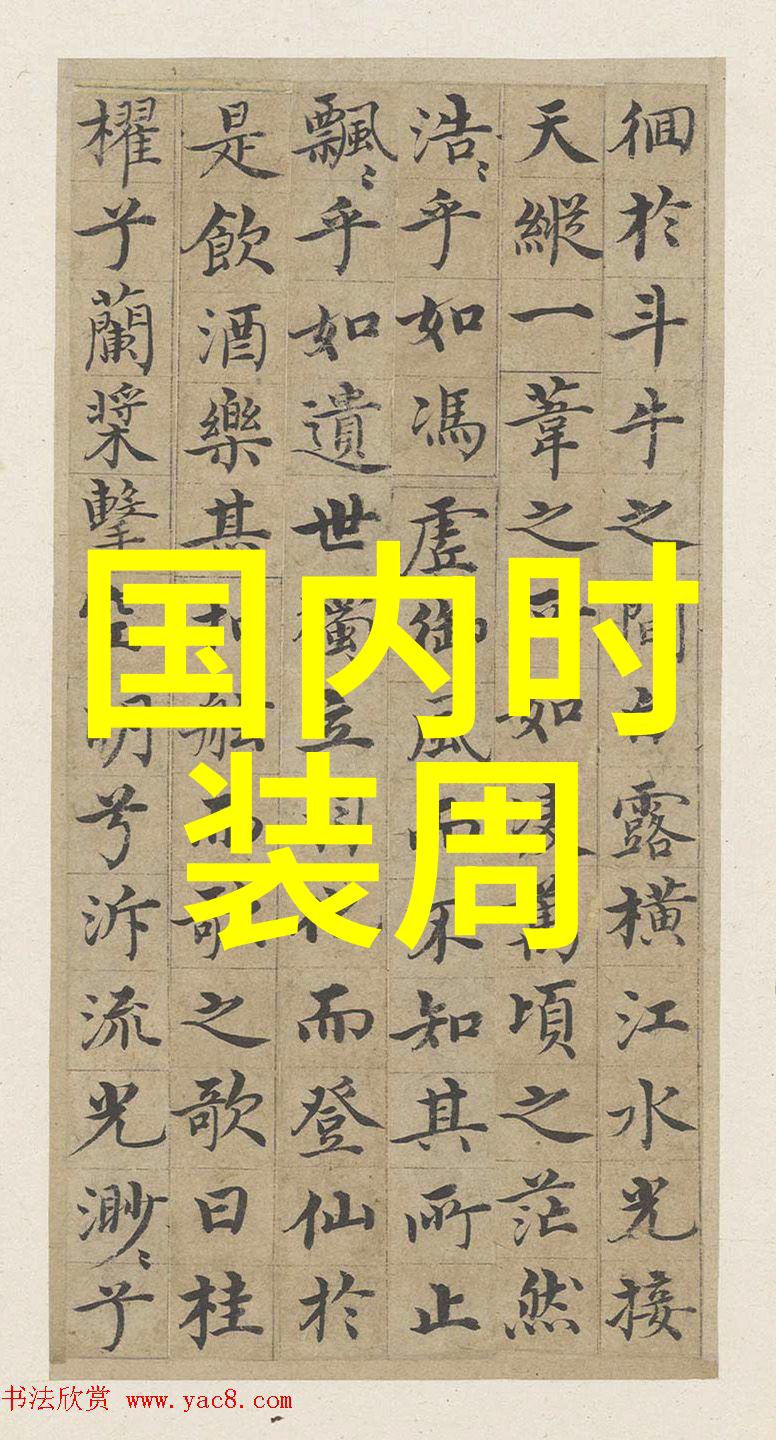 徊於斗牛之間白露橫江水光接
天縱一葦之如凌萬頃之茫然
浩〻乎如馮虛御風而不知其所止
飄〻乎如遺世獨立而登仙於
是飲酒樂甚舷而歌之歌曰桂
櫂兮蘭槳擊空明兮泝流光渺〻兮
国内时
装周
书法欣赏 www.yac8.com